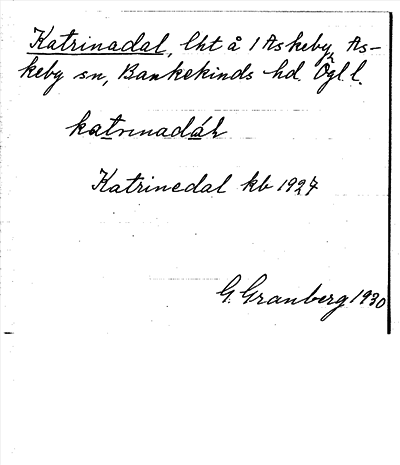 Katrinadal, lht å 1 Askeby, As-
keby sn, Bankekinds hd. Ögl l.
katrinadál
Katrinedal kb 1927
G. Granberg 1930